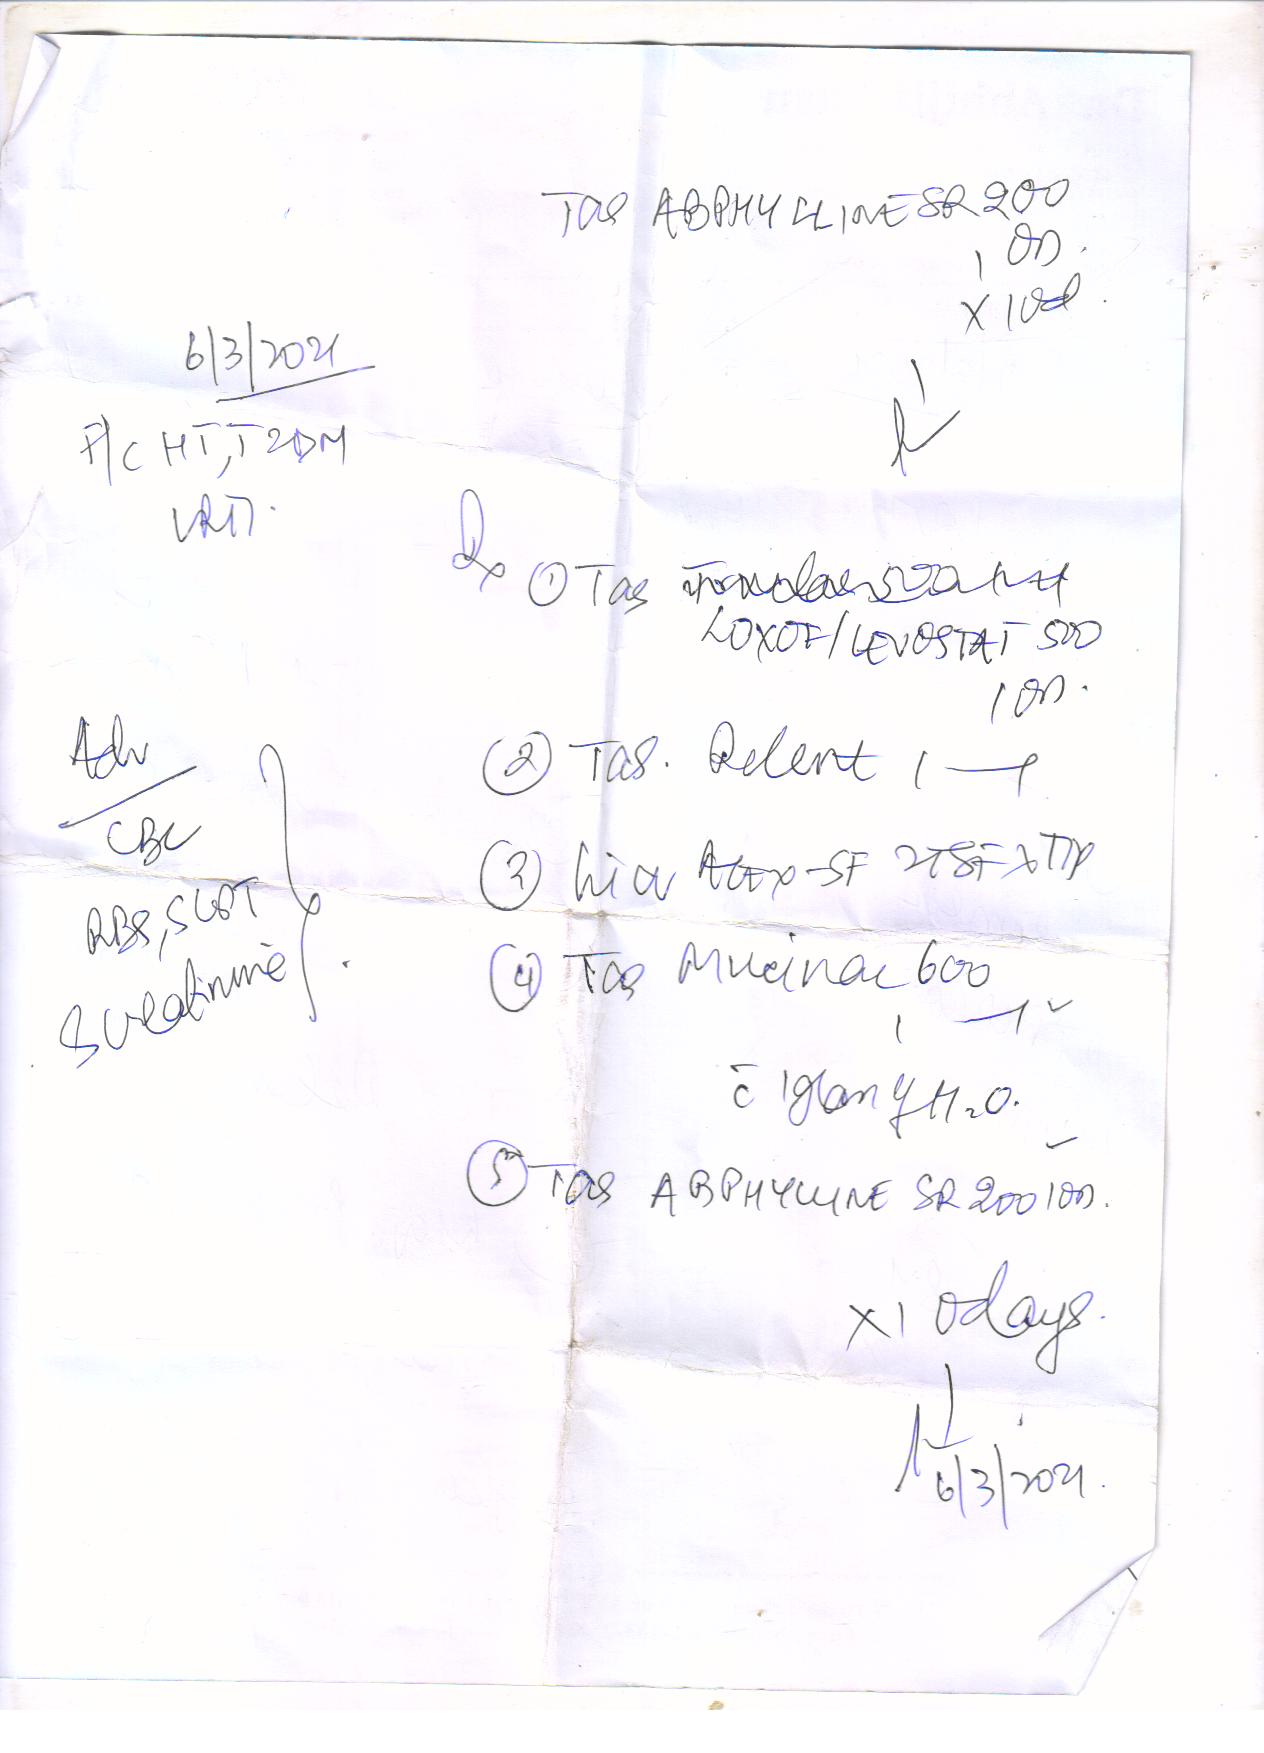 Tab ABPHYLLINE SR 200
1 OD.
x 10d.
6/3/2021
F/C HT, T2DM
LRTI.
Rx ① Tab
LOXOF/LEVOSTAT 500
1 OD.
② Tab. Relent 1
③ Liq Alex-SF 2TSF x TTP
④ Tab Mucinac 600
1
c̄ 1 glan of H2O.
⑤ Tab ABPHYLLINE SR 200 1 OD.
x 10 days.
6/3/2021.
Adv
CBC
RBS, SGPT
S creatinine